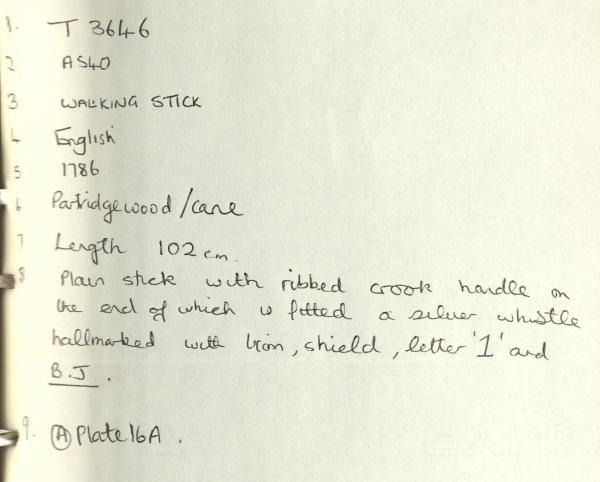 1. T 3646
2 AS40
3 WALKING STICK
4 English
5 1786
6 Partridgewood/cane
7 Length 102 cm.
8 Plain stick with ribbed crook handle on
the end of which is fitted a silver whistle
hallmarked with lion, shield, letter '1' and
B.J.
9. (A) Plate 16A.